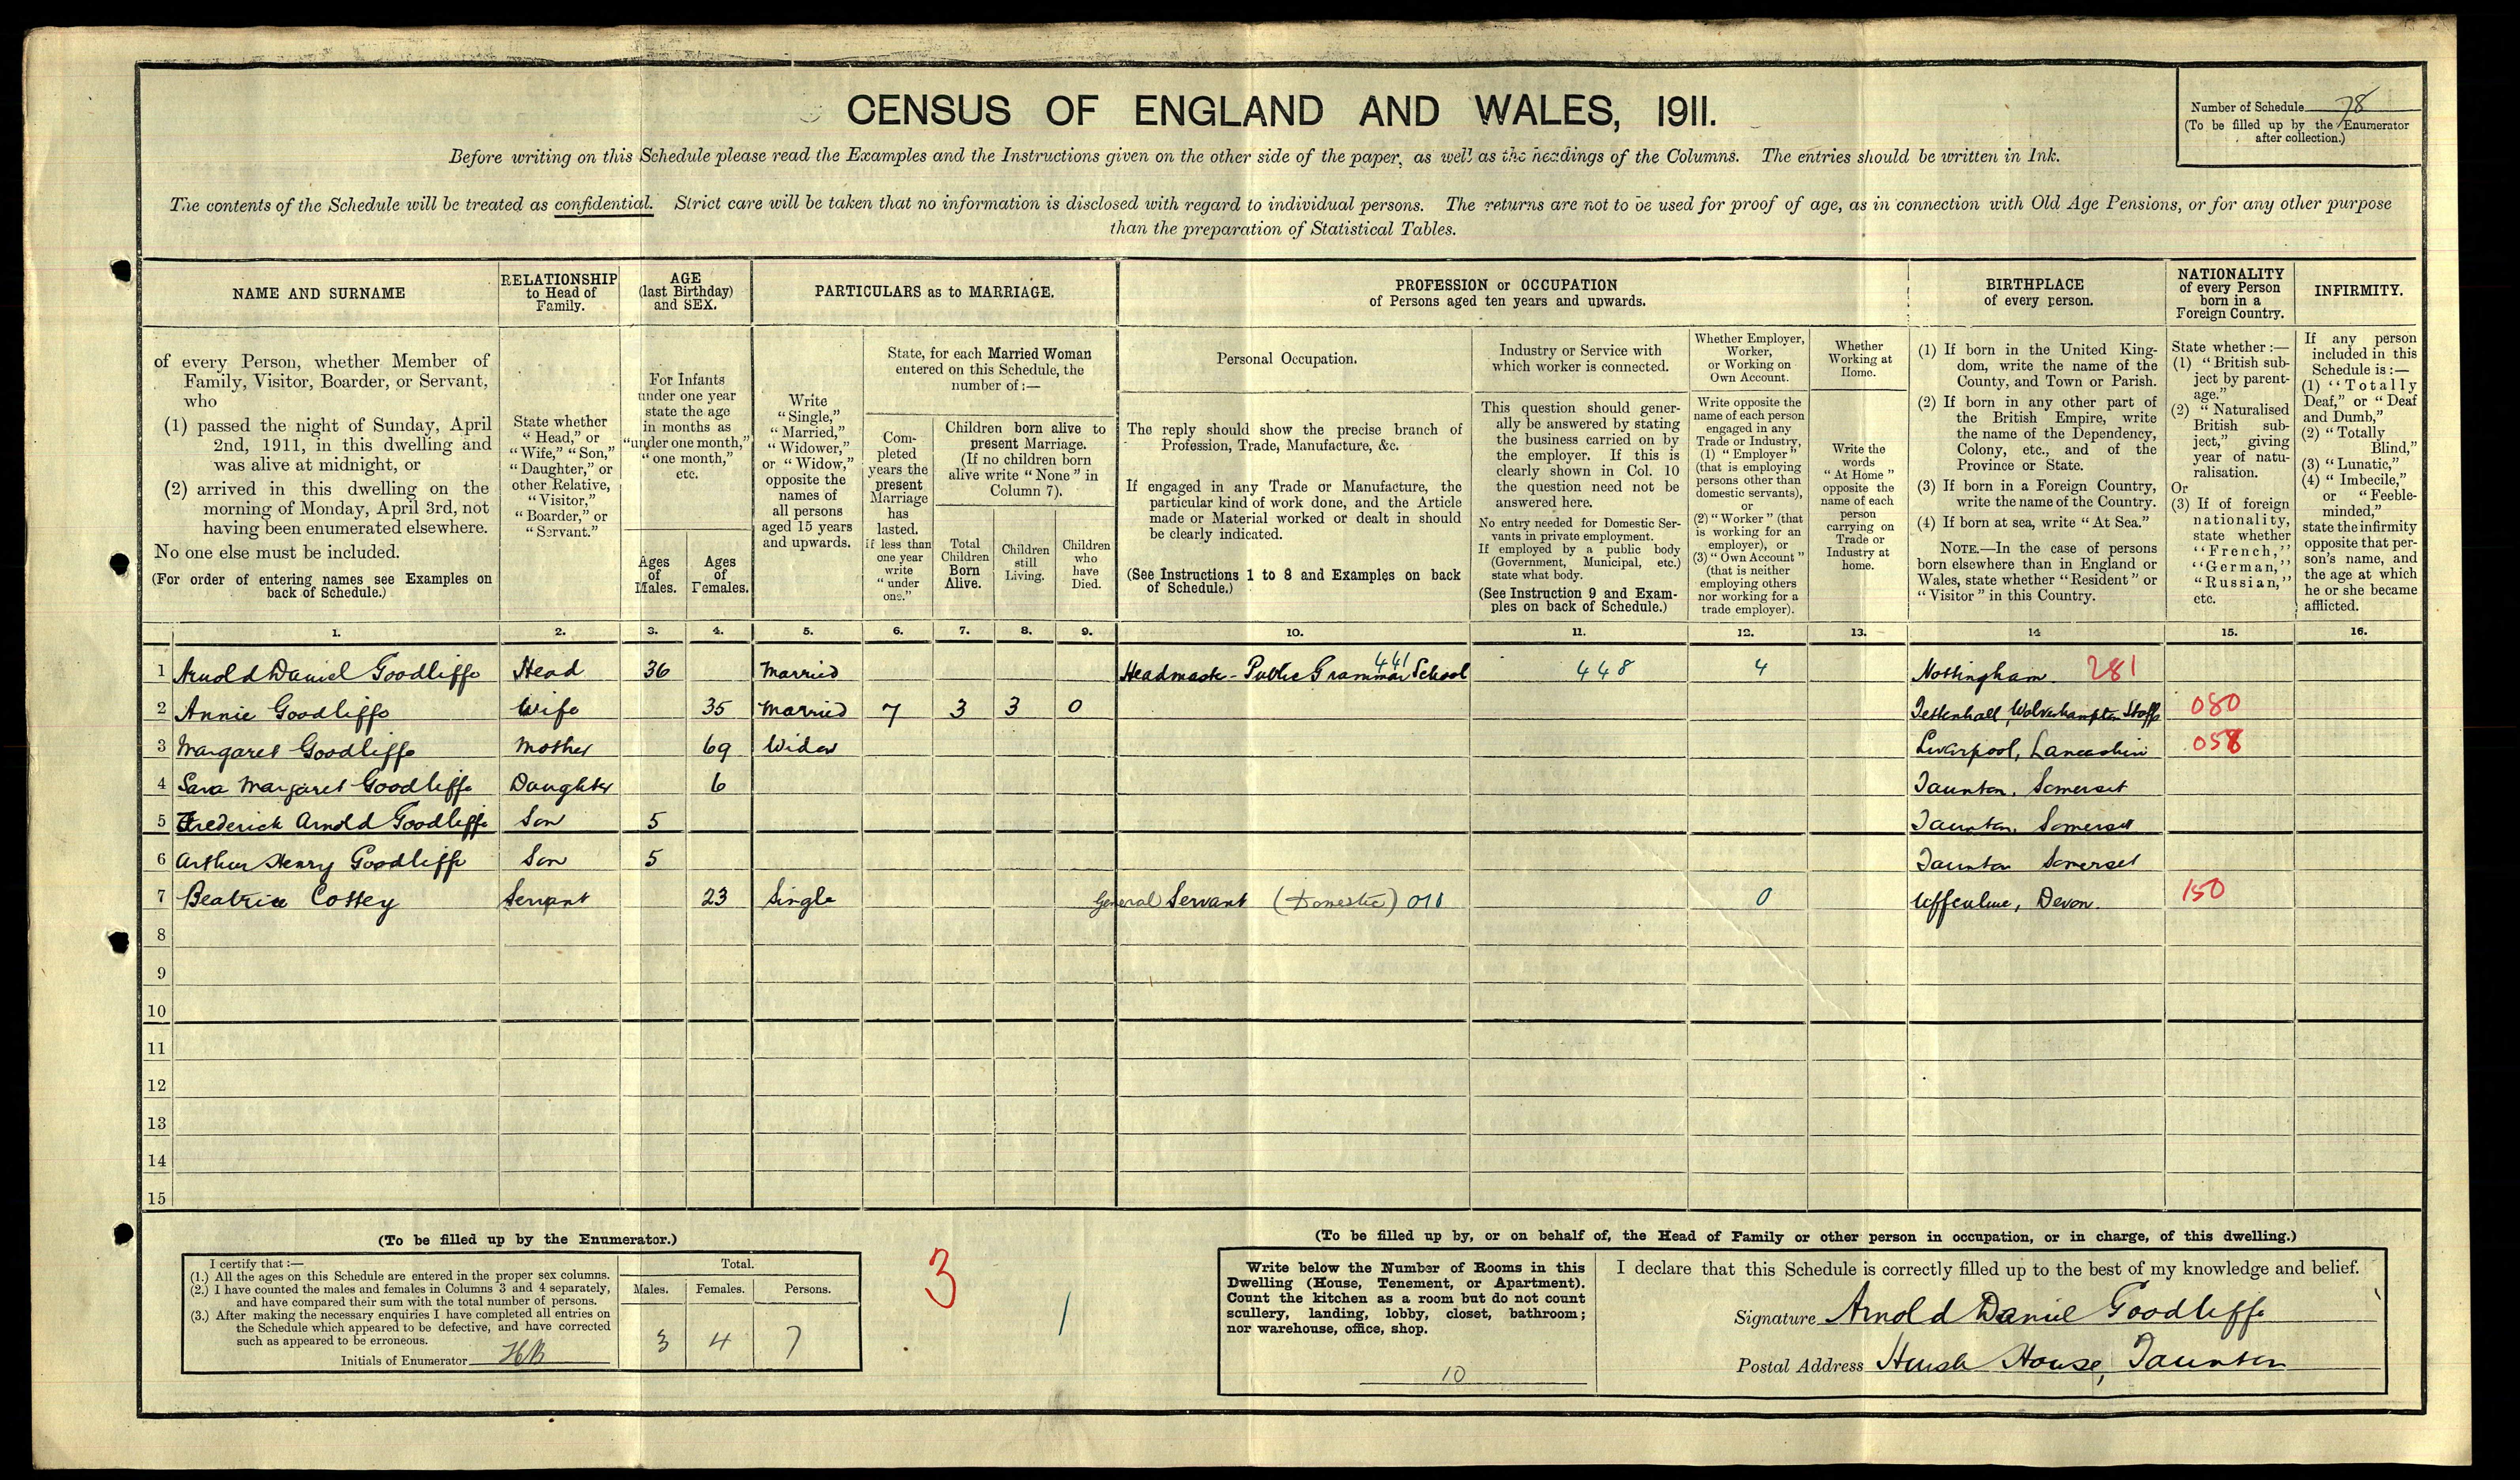 CENSUS OF ENGLAND AND WALES, 1911.
Number of Schedule 78
(To be filled up by the Enumerator
after collection.)
Before writing on this Schedule please read the Examples and the Instructions given on the other side of the paper, as well as the headings of the Columns. The entries should be written in Ink.
The contents of the Schedule will be treated as confidential. Strict care will be taken that no information is disclosed with regard to individual persons. The returns are not to be used for proof of age, as in connection with Old Age Pensions, or for any other purpose
than the preparation of Statistical Tables.
NAME AND SURNAME
of every Person, whether Member of
Family, Visitor, Boarder, or Servant,
who
(1) passed the night of Sunday, April
2nd, 1911, in this dwelling and
was alive at midnight, or
(2) arrived in this dwelling on the
morning of Monday, April 3rd, not
having been enumerated elsewhere.
No one else must be included.
(For order of entering names see Examples on
back of Schedule.)
RELATIONSHIP
to Head of
Family.
State whether
"Head," or
"Wife," "Son,"
"Daughter," or
other Relative,
"Visitor,"
"Boarder," or
"Servant."
AGE
(last Birthday)
and SEX.
For Infants
under one year
state the age
in months as
"under one month,"
"one month,"
etc.
Ages
of
Males.
Ages
of
Females.
PARTICULARS as to MARRIAGE.
Write
"Single,"
"Married,"
"Widower,"
or "Widow,"
opposite the
names of
all persons
aged 15 years
and upwards.
State, for each Married Woman
entered on this Schedule, the
number of:—
Com-
pleted
years the
present
Marriage
has
lasted.
If less than
one year
write
"under
one."
Children born alive to
present Marriage.
(If no children born
alive write "None" in
Column 7).
Total
Children
Born
Alive.
Children
still
Living.
Children
who
have
Died.
PROFESSION or OCCUPATION
of Persons aged ten years and upwards.
Personal Occupation.
The reply should show the precise branch of
Profession, Trade, Manufacture, &c.
If engaged in any Trade or Manufacture, the
particular kind of work done, and the Article
made or Material worked or dealt in should
be clearly indicated.
(See Instructions 1 to 8 and Examples on back
of Schedule.)
Industry or Service with
which worker is connected.
This question should gener-
ally be answered by stating
the business carried on by
the employer. If this is
clearly shown in Col. 10
the question need not be
answered here.
No entry needed for Domestic Ser-
vants in private employment.
If employed by a public body
(Government, Municipal, etc.)
state what body.
(See Instruction 9 and Exam-
ples on back of Schedule.)
Whether Employer,
Worker,
or Working on
Own Account.
Write opposite the
name of each person
engaged in any
Trade or Industry,
(1) "Employer"
(that is employing
persons other than
domestic servants),
or
(2) "Worker" (that
is working for an
employer), or
(3) "Own Account"
(that is neither
employing others
nor working for a
trade employer).
Whether
Working at
Home.
Write the
words
"At Home"
opposite the
name of each
person
carrying on
Trade or
Industry at
home.
BIRTHPLACE
of every person.
(1) If born in the United King-
dom, write the name of the
County, and Town or Parish.
(2) If born in any other part of
the British Empire, write
the name of the Dependency,
Colony, etc., and of the
Province or State.
(3) If born in a Foreign Country,
write the name of the Country.
(4) If born at sea, write "At Sea."
NOTE.—In the case of persons
born elsewhere than in England or
Wales, state whether "Resident" or
"Visitor" in this Country.
NATIONALITY
of every Person
born in a
Foreign Country.
State whether:—
(1) "British sub-
ject by parent-
age."
(2) "Naturalised
British sub-
ject," giving
year of natu-
ralisation.
Or
(3) If of foreign
nationality,
state whether
"French,"
"German,"
"Russian,"
etc.
INFIRMITY.
If any person
included in this
Schedule is:—
(1) "Totally
Deaf," or "Deaf
and Dumb,"
(2) "Totally
Blind,"
(3) "Lunatic,"
(4) "Imbecile,"
or "Feeble-
minded,"
state the infirmity
opposite that per-
son's name, and
the age at which
he or she became
afflicted.
1. 2. 3. 4. 5. 6. 7. 8. 9. 10. 11. 12. 13. 14 15. 16.
1 Arnold Daniel Goodliffe Head 36 Married Headmaster Public Grammar School 441 448 4 Nottingham 281
2 Annie Goodliffe Wife 35 Married 7 3 3 0 Tettenhall, Wolverhampton Staffs 080
3 Margaret Goodliffe Mother 69 Widow Liverpool, Lancashire 058
4 Sara Margaret Goodliffe Daughter 6 Taunton, Somerset
5 Frederick Arnold Goodliffe Son 5 Taunton, Somerset
6 Arthur Henry Goodliffe Son 5 Taunton Somerset
7 Beatrice Cottey Servant 23 Single General Servant (Domestic) 010 0 Uffculme, Devon. 150
8
9
10
11
12
13
14
15
(To be filled up by the Enumerator.)
I certify that:—
(1.) All the ages on this Schedule are entered in the proper sex columns.
(2.) I have counted the males and females in Columns 3 and 4 separately,
and have compared their sum with the total number of persons.
(3.) After making the necessary enquiries I have completed all entries on
the Schedule which appeared to be defective, and have corrected
such as appeared to be erroneous.
Initials of Enumerator HB
Total.
Males. Females. Persons.
3 4 7
3
1
(To be filled up by, or on behalf of, the Head of Family or other person in occupation, or in charge, of this dwelling.)
Write below the Number of Rooms in this
Dwelling (House, Tenement, or Apartment).
Count the kitchen as a room but do not count
scullery, landing, lobby, closet, bathroom;
nor warehouse, office, shop.
10
I declare that this Schedule is correctly filled up to the best of my knowledge and belief.
Signature Arnold Daniel Goodliffe
Postal Address Huish House, Taunton